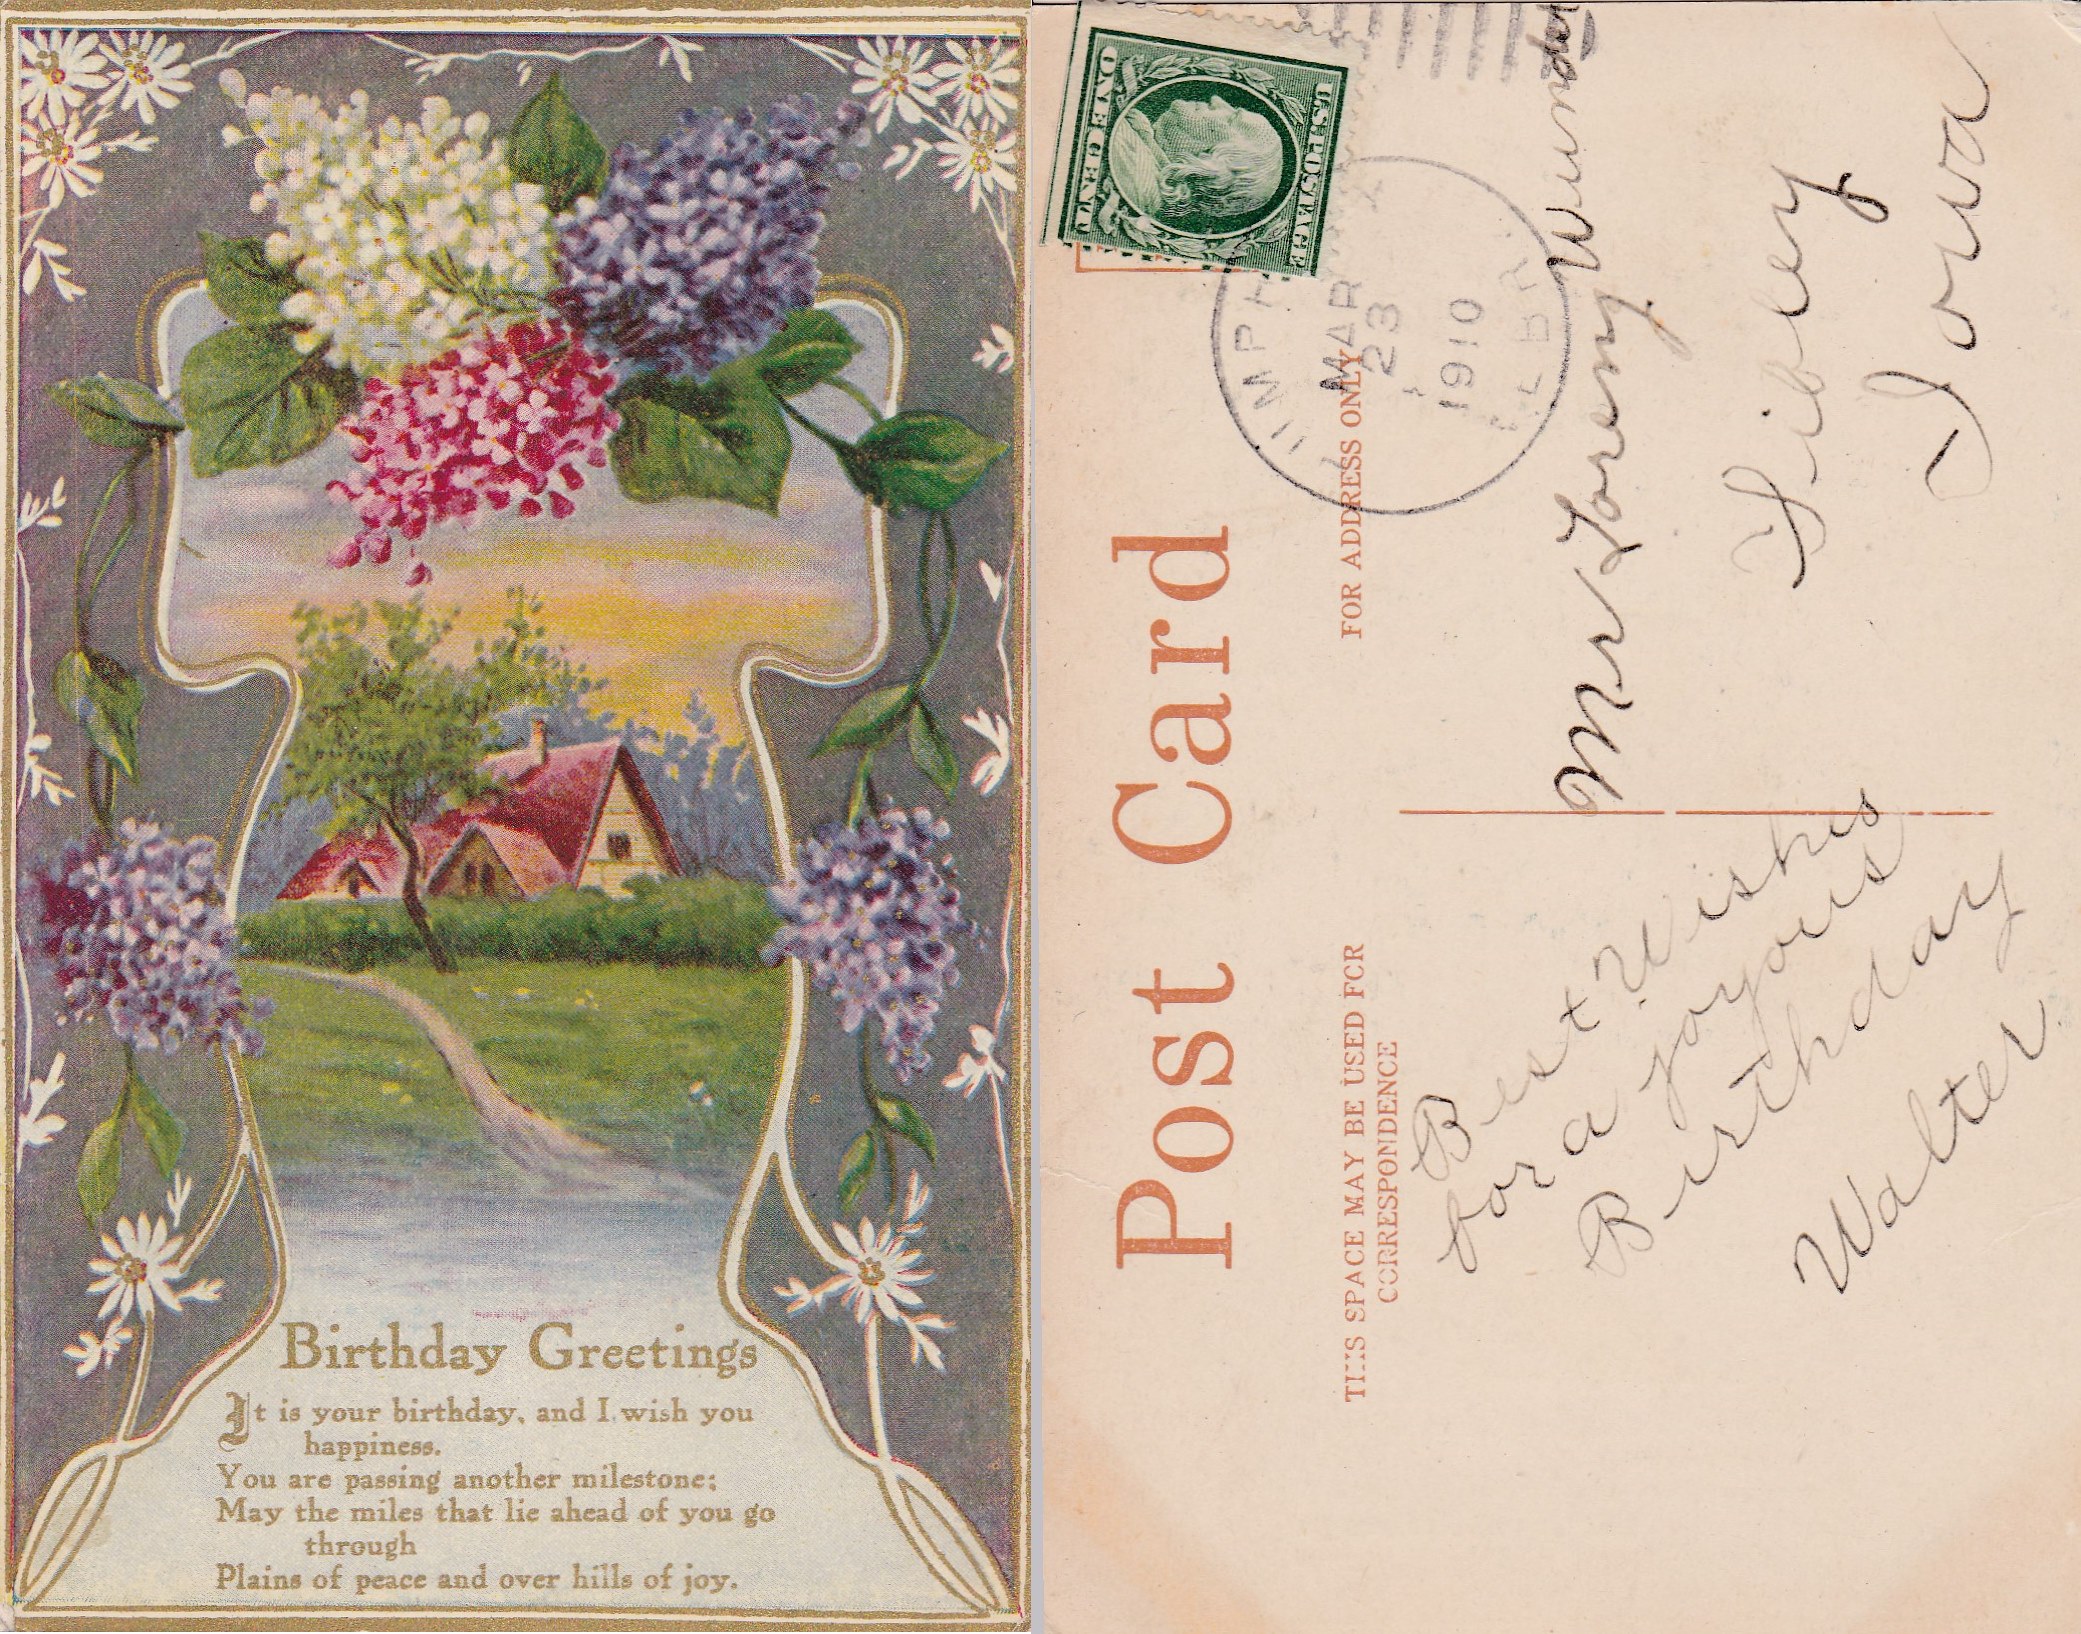 Birthday Greetings
It is your birthday, and I wish you
happiness.
You are passing another milestone;
May the miles that lie ahead of you go
through
Plains of peace and over hills of joy.
Post Card
THIS SPACE MAY BE USED FOR
CORRESPONDENCE
FOR ADDRESS ONLY
U.S. POSTAGE
ONE CENT
MAR
23
1910
NEBR.
Best Wishes
for a joyous
Birthday
Walter.
Mr Loreny
Sibley
Iowa